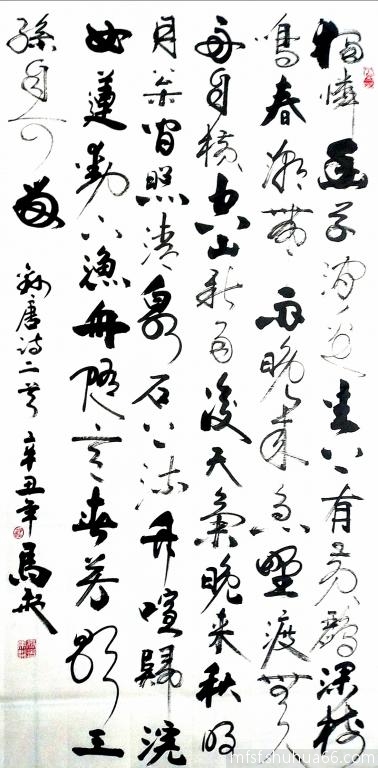 獨憐幽草澗邊生上有黃鸝深樹
鳴春潮帶雨晚來急野渡無人
舟自橫空山新雨後天氣晚來秋明
月松間照清泉石上流竹喧歸浣
女蓮動下漁舟隨意春芳歇王
孫自可留
錄唐詩二首 辛丑年 馬
mfsf.shuhua66.com